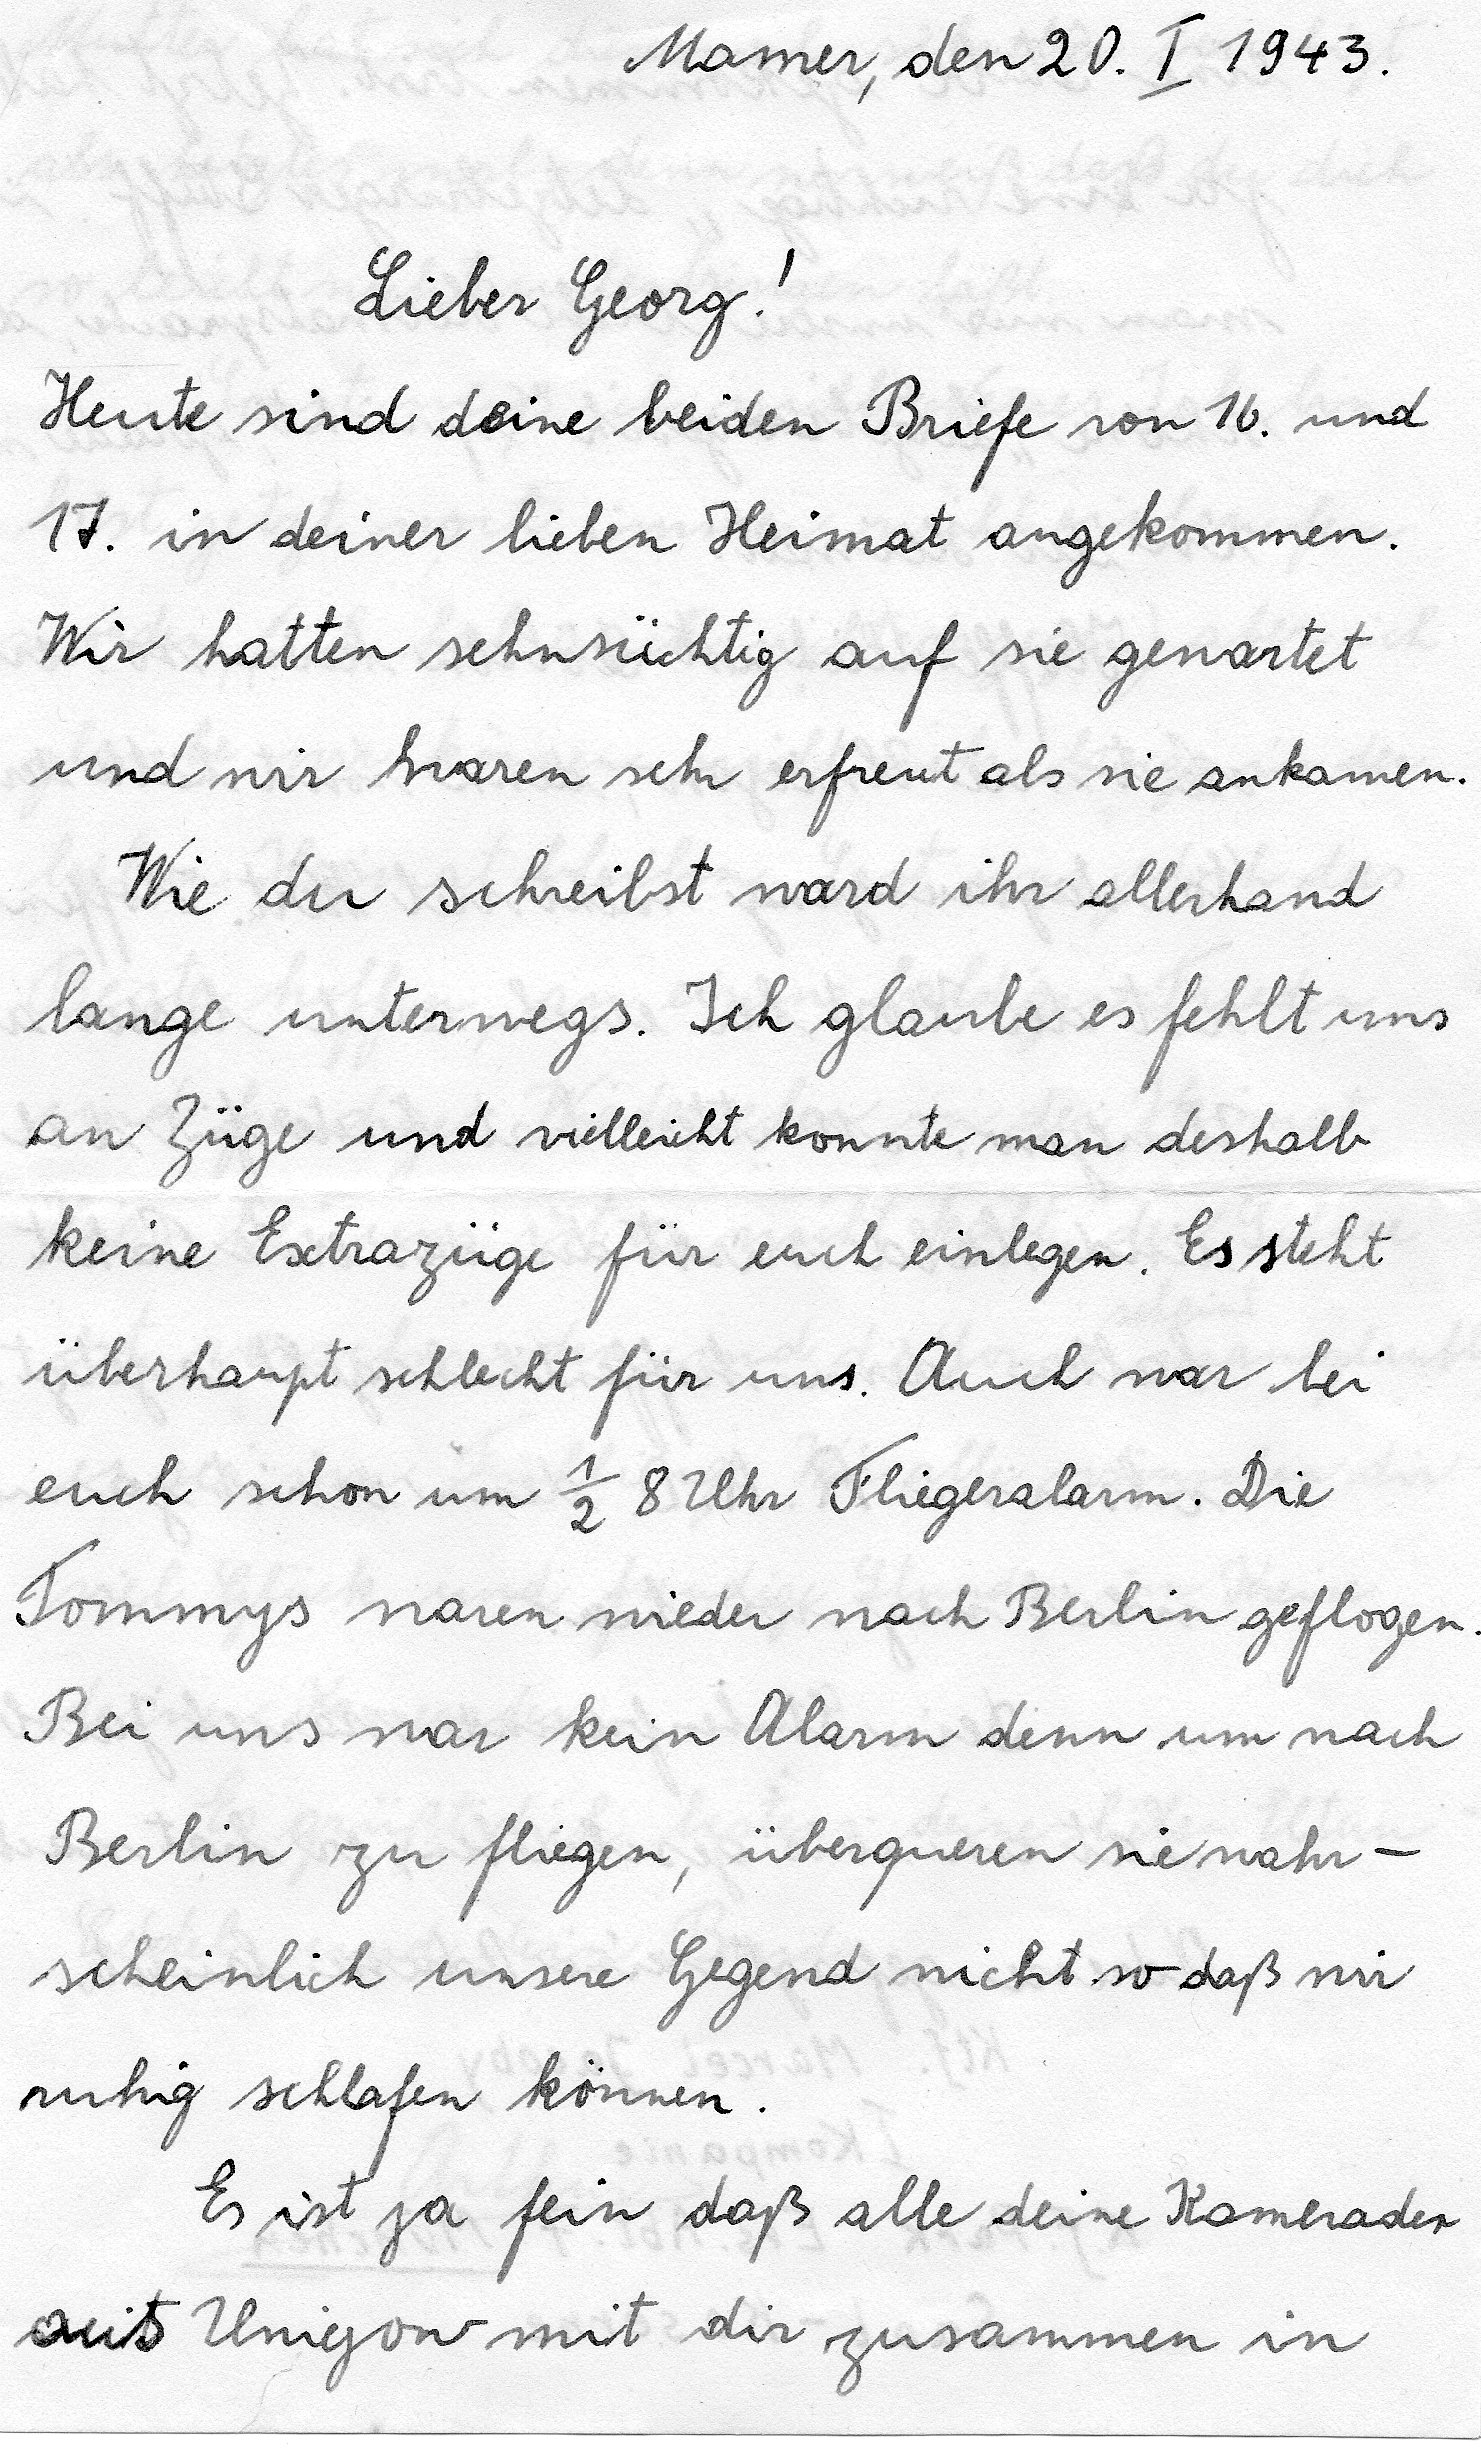 Mamer, den 20. I 1943.
Lieber Georg!
Heute sind deine beiden Briefe von 16. und
17. in deiner lieben Heimat angekommen.
Wir hatten sehnsüchtig auf sie gewartet
und wir waren sehr erfreut als sie ankamen.
Wie du schreibst ward ihr allerhand
lange unterwegs. Ich glaube es fehlt uns
an Züge und vielleicht konnte man deshalb
keine Extrazüge für euch einlegen. Es steht
überhaupt schlecht für uns. Auch war bei
euch schon um 1/2 8 Uhr Fliegeralarm. Die
Tommys waren wieder nach Berlin geflogen.
Bei uns war kein Alarm denn um nach
Berlin zu fliegen, überqueren sie wahr-
scheinlich unsere Gegend nicht so daß wir
ruhig schlafen können.
Es ist ja fein daß alle deine Kameraden
aus Unigow mit dir zusammen in